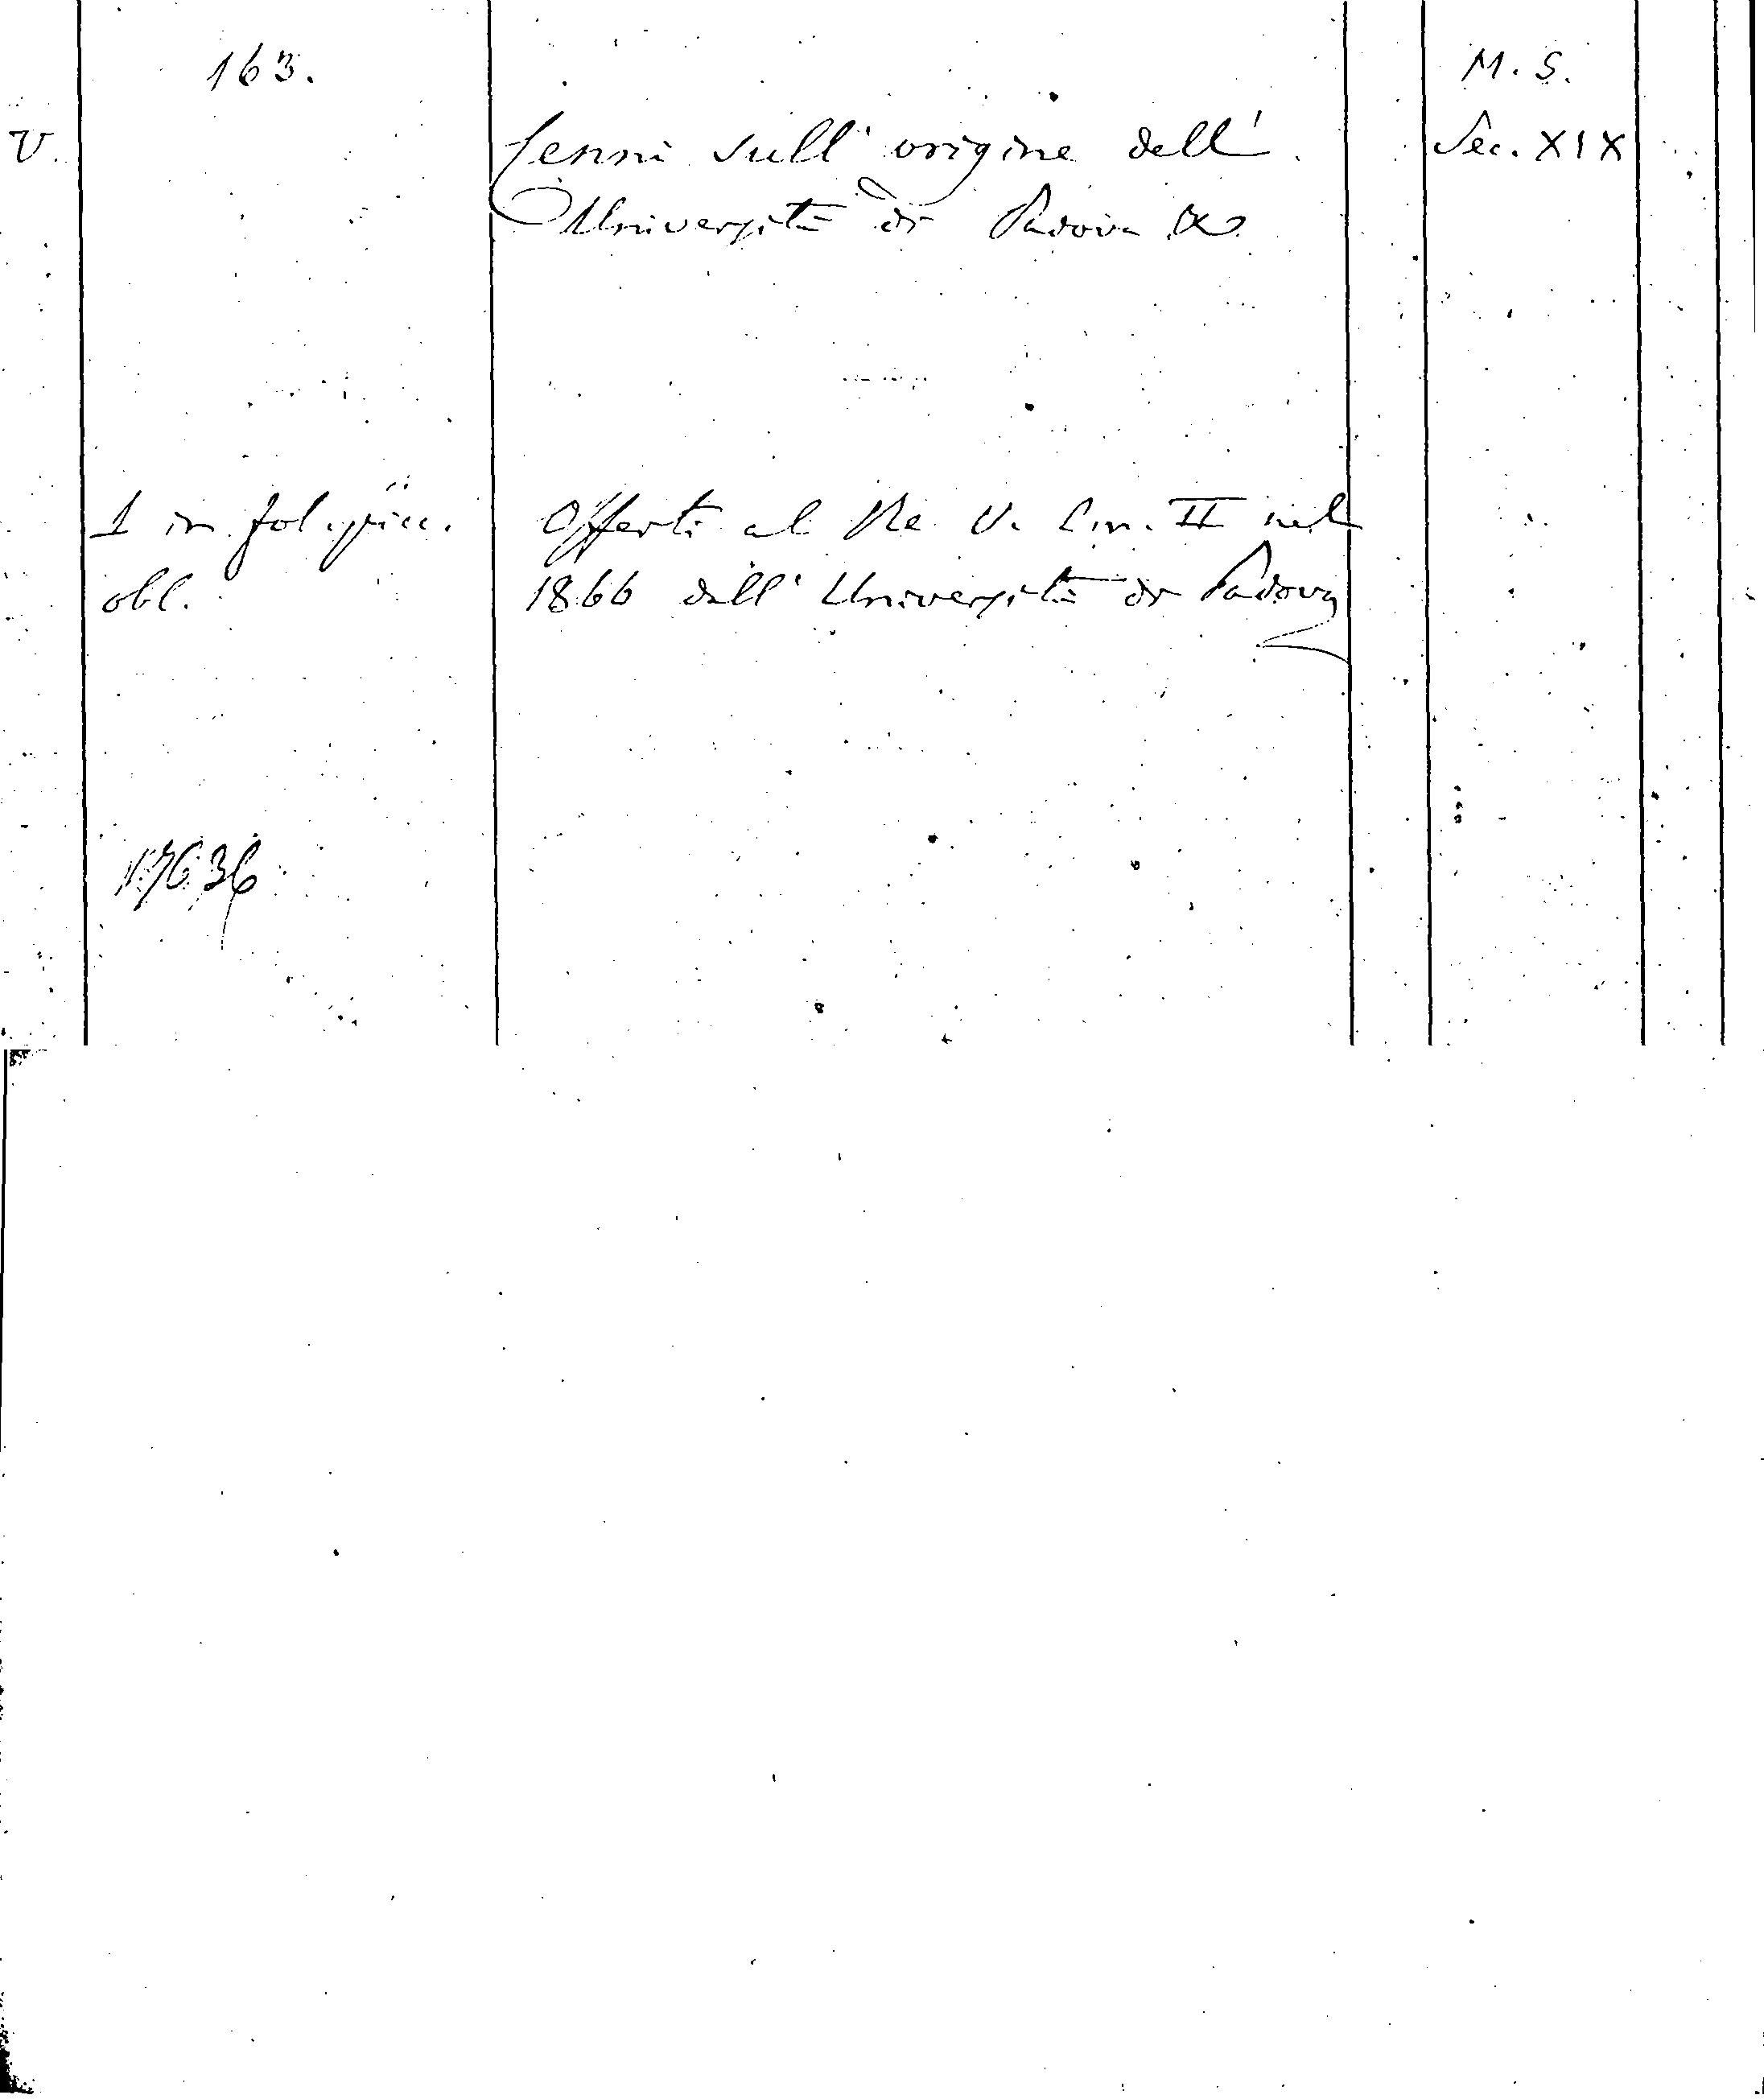 163.
M. S.
V.
Cenni sull' origine dell'
Sec. XIX
Università di Padova &
1 in fol. picc.
Offerti al Re V. Em. II nel
obl.
1866 dall' Università di Padova